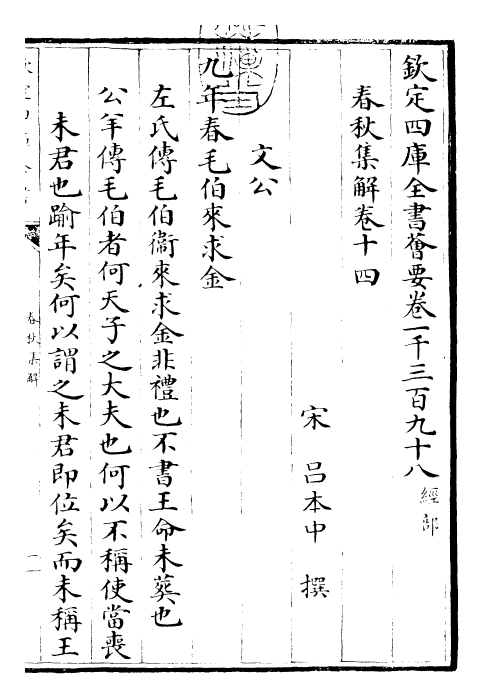 欽定四庫全書薈要卷一千三百九十八 經部
春秋集解卷十四
宋 呂本中 撰
文公
九年春毛伯來求金
左氏傳毛伯衞來求金非禮也不書王命未葬也
公羊傳毛伯者何天子之大夫也何以不稱使當喪
未君也踰年矣何以謂之未君即位矣而未稱王
春秋集解
一